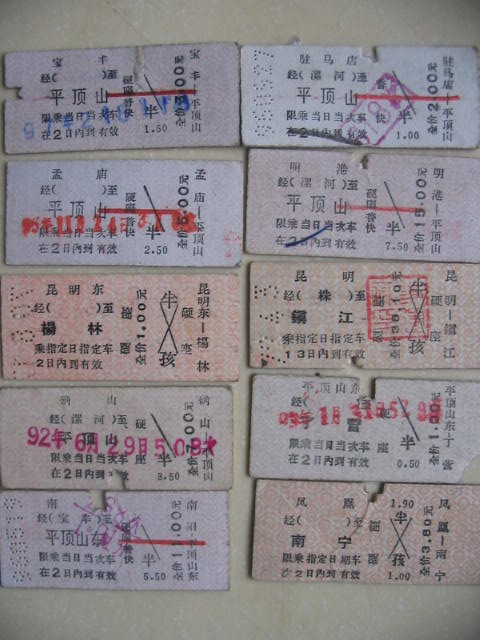 宝丰
经( )至
平顶山
限乘当日当次车
在2日内到有效
硬座普快
半
1.50
全价3.00元
宝丰—平顶山
驻马店
经(漯河)至
平顶山
限乘当日当次车
在2日内到有效
普快
半
1.00
全价2.00元
驻马店—平顶山
孟庙
经( )至
平顶山
限乘当日当次车
在2日内到有效
硬座普快
半
2.50
全价5.00元
孟庙—平顶山
明港
经(漯河)至
平顶山
限乘当日当次车
在2日内到有效
硬座普快
半
7.50
全价15.00元
明港—平顶山
昆明东
经( )至
楊林
乘指定日指定车
2日内到有效
硬座
全价1.00元
半
孩
昆明东—楊林
昆明
经(株)至
鎮江
乘指定日指定车
13日内到有效
半
孩
硬座
昆明—鎮江
山
经(漯河)至
平顶山
92年6月29日508次
限乘当日当次车
在2日内到有效
硬座
半
平顶山
平顶山东
经( )至
限乘当日当次车
在2日内到有效
半
0.50
全价1.00元
经(宝丰)至
平顶山东
限乘当日当次车
在2日内到有效
硬座普快
半
5.50
全价11.00元
平顶山东
凤凰
经( )至
南宁
限乘指定日期车
次2日内到有效
硬座
1.90
半
孩
1.00
全价3.80元
凤凰—南宁